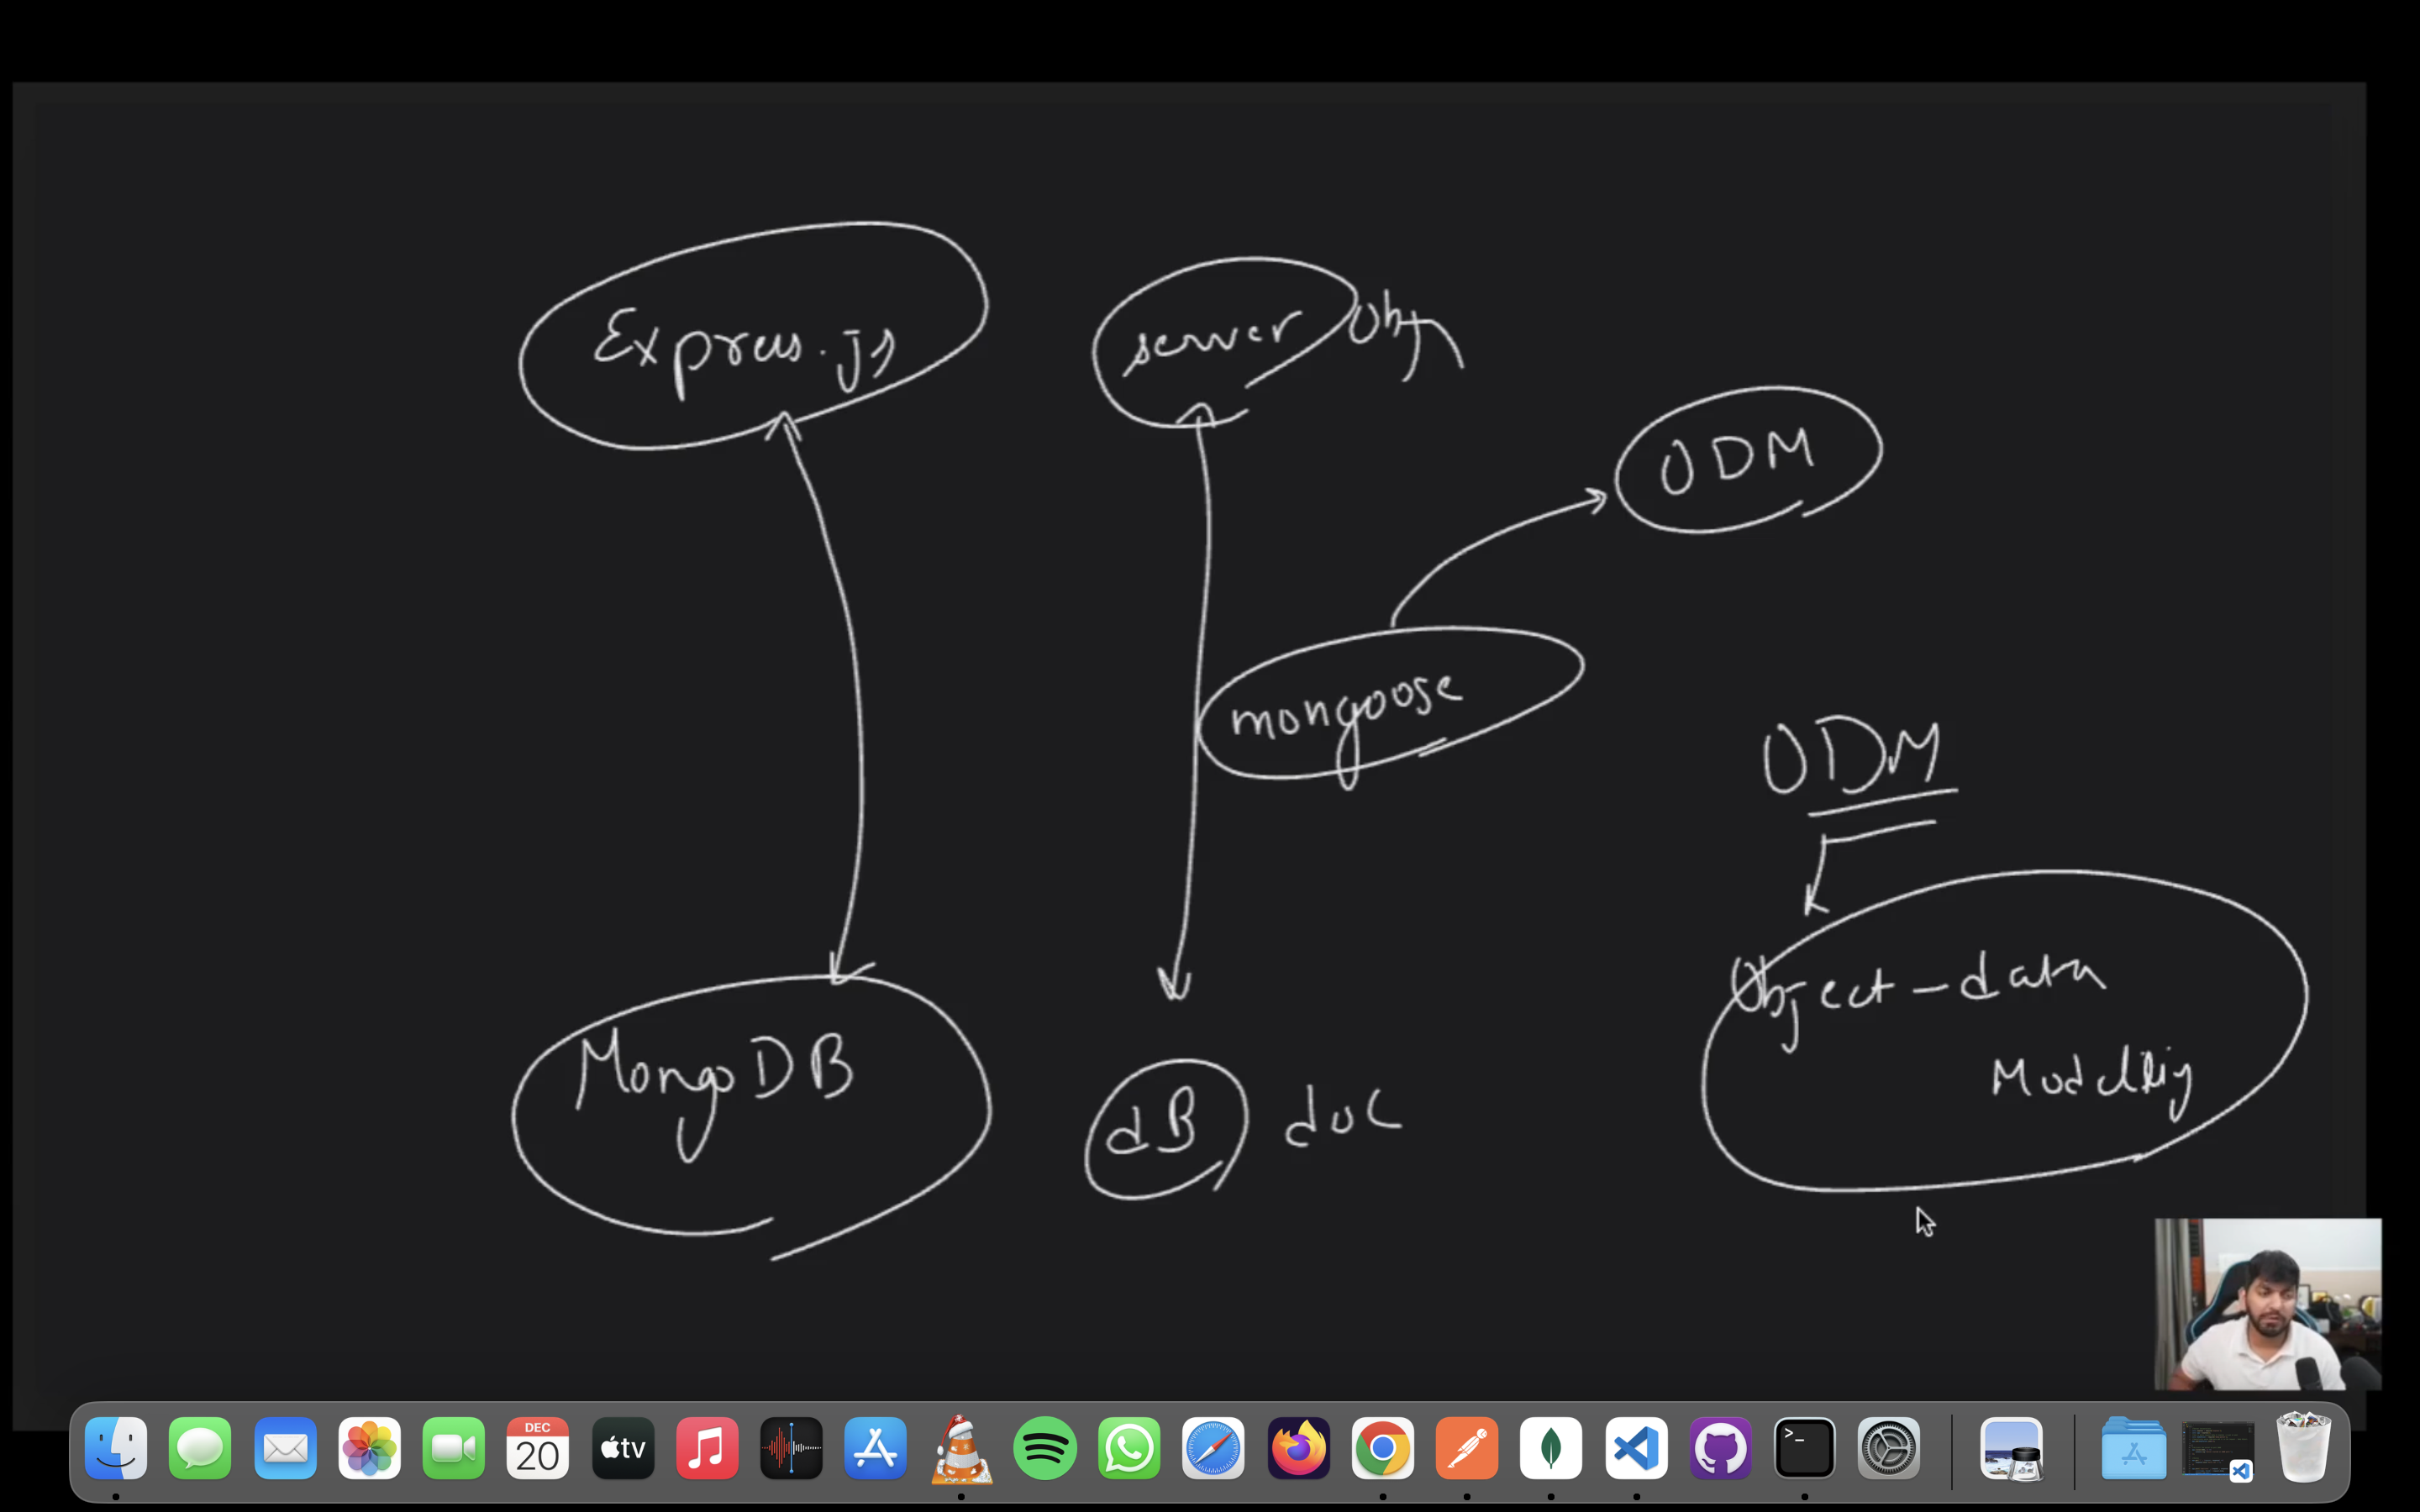 Express.js
server Obj
ODM
mongoose
ODM
Object-data
Modelling
MongoDB
dB doc
DEC
20
tv
>_